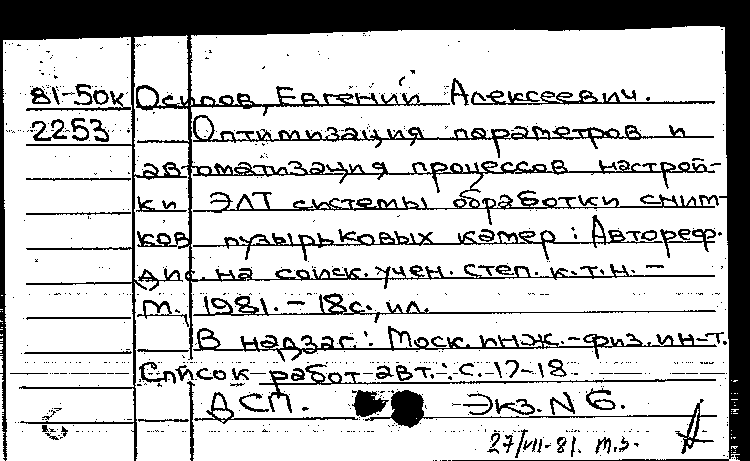 81-50к Осипов, Евгений Алексеевич.
2253 Оптимизация параметров и
автоматизация процессов настрой-
ки ЭЛТ системы обработки сним-
ков пузырьковых камер : Автореф.
дис. на соиск. учен. степ. к.т.н. -
М., 1981. - 18с., ил.
В надзаг.: Моск. инж.-физ. ин-т.
Список работ авт.: с. 17-18.
ДСП. Экз. N 6.
27/VII-81. т.э.